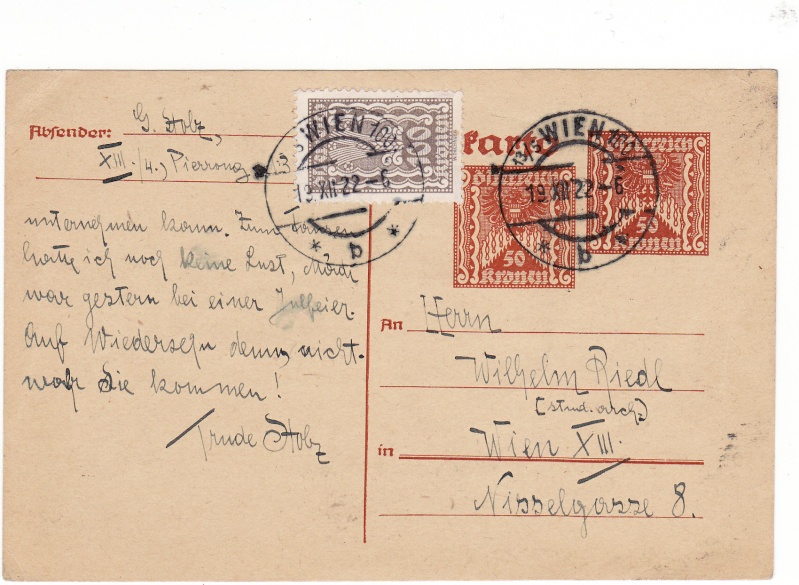 Absender: G. Holz,
XIII./4., Pierrong
unternehmen kann. Zum
hatte ich noch keine Lust,
war gestern bei einer Julfeier.
Auf Wiedersehn denn, nicht-
wahr Sie kommen!
Trude Holz
WIEN 100
19.XII.22-6
* b *
karte
WIEN 100
19.XII.22-6
* b *
50
Kronen
Österreich
Kronen
An Herrn
Wilhelm Riedl
(stud. arch.)
in Wien XIII.
Nisselgasse 8.